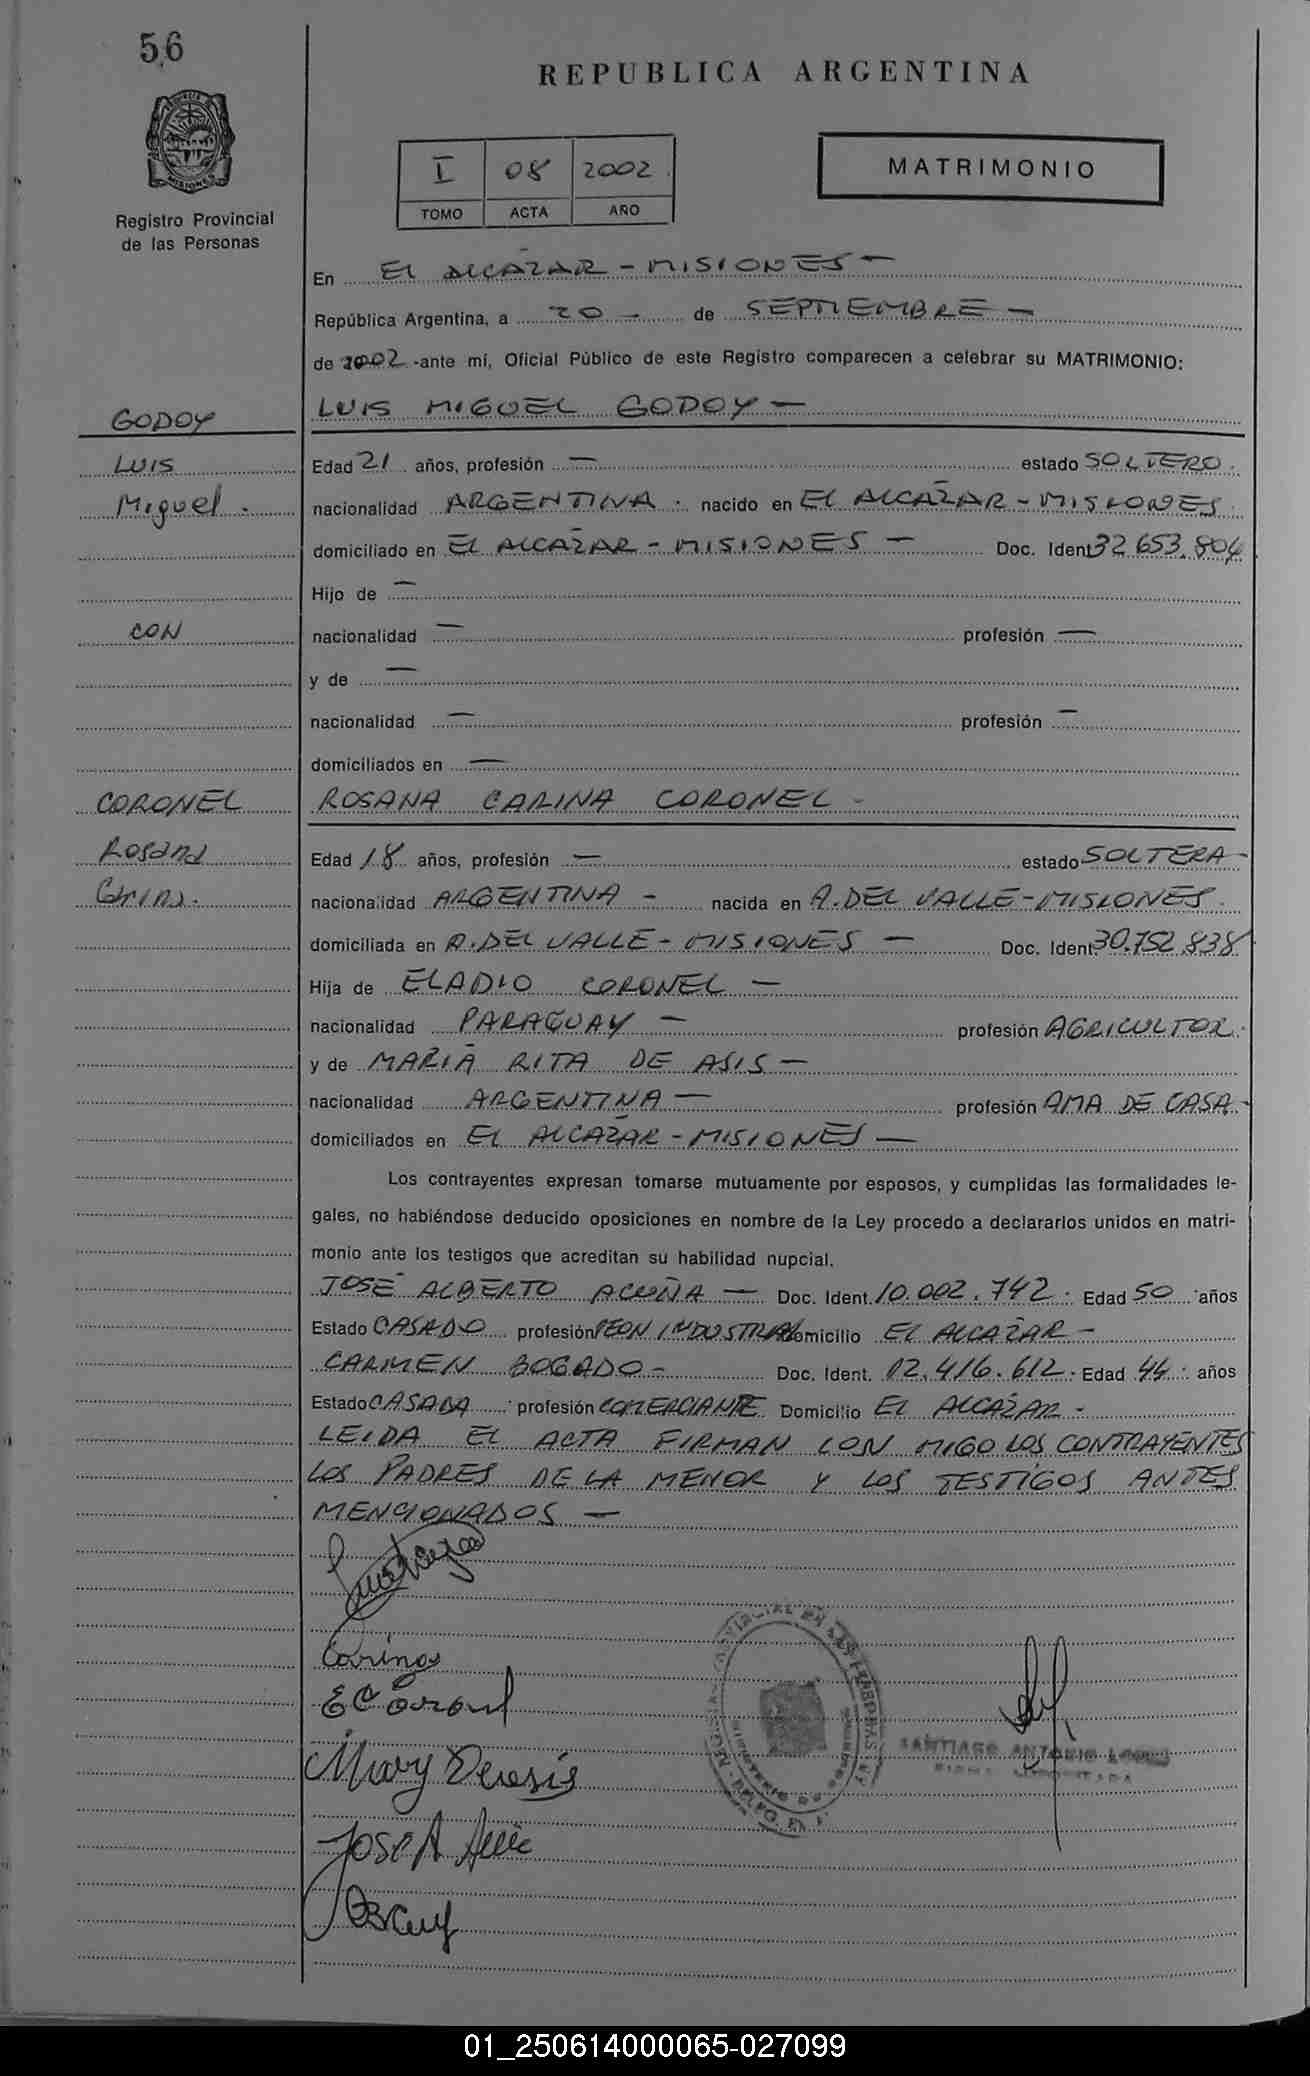 56
REPUBLICA ARGENTINA
MISIONES
Registro Provincial
de las Personas
I 08 2002
TOMO ACTA AÑO
MATRIMONIO
En EL ALCAZAR - MISIONES -
República Argentina, a 20 - de SEPTIEMBRE -
de 2002 -ante mí, Oficial Público de este Registro comparecen a celebrar su MATRIMONIO:
GODOY LUIS MIGUEL GODOY -
LUIS Edad 21 años, profesión - estado SOLTERO.
Miguel. nacionalidad ARGENTINA. nacido en EL ALCAZAR - MISIONES.
domiciliado en EL ALCAZAR - MISIONES - Doc. Ident 32 653.804
Hijo de -
CON nacionalidad - profesión -
y de -
nacionalidad - profesión -
domiciliados en -
CORONEL ROSANA CARINA CORONEL -
Rosana Edad 18 años, profesión - estado SOLTERA -
Carina. nacionalidad ARGENTINA - nacida en A. DEL VALLE - MISIONES.
domiciliada en A. DEL VALLE - MISIONES - Doc. Ident. 30.752.838
Hija de ELADIO CORONEL -
nacionalidad PARAGUAY - profesión AGRICULTOR.
y de MARIA RITA DE ASIS -
nacionalidad ARGENTINA - profesión AMA DE CASA -
domiciliados en EL ALCAZAR - MISIONES -
Los contrayentes expresan tomarse mutuamente por esposos, y cumplidas las formalidades le-
gales, no habiéndose deducido oposiciones en nombre de la Ley procedo a declararlos unidos en matri-
monio ante los testigos que acreditan su habilidad nupcial.
JOSÉ ALBERTO ACUÑA - Doc. Ident. 10.002.742. Edad 50 años
Estado CASADO profesión PEON INDUSTRIAL domicilio EL ALCAZAR -
CARMEN BOGADO - Doc. Ident. 12.416.612. Edad 44 años
Estado CASADA profesión COMERCIANTE Domicilio EL ALCAZAR -
LEIDA EL ACTA FIRMAN CON MIGO LOS CONTRAYENTES
LOS PADRES DE LA MENOR Y LOS TESTIGOS ANTES
MENCIONADOS -
Carina
E C Coronel
Mary Deasis
SANTIAGO ANTONIO LOPEZ
JOSE A
01_250614000065-027099